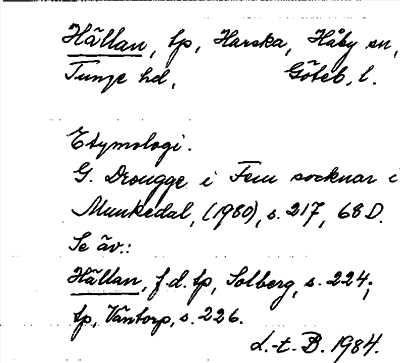 Hällan, tp, Harska, Håby sn,
Tunge hd, Göteb. l.
Etymologi.
G. Drougge i Fem socknar i
Munkedal, (1980), s. 217, 68 D.
Se äv.:
Hällan, f.d. tp, Solberg, s. 224;
tp, Väntorp, s. 226.
L.-t. B. 1984.